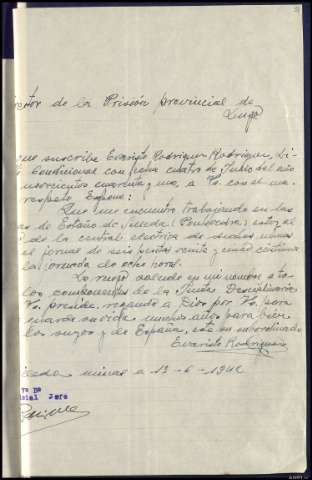 ector de la Prisión provincial de
Lugo
que suscribe Evaristo Rodriguez Rodriguez, Li-
d Condicional con fecha cuatro de Junio del año
novecientos cuarenta y uno, a V. con el ma
respeto Expone:
Que me encuentro trabajando en las
as de Estaño de Silleda (Pontevedra) estoy al
de la central electrica de dichas minas
el jornal de seis pesetas veinte y cinco centimos
la jornada de ocho horas.
Le ruego salude en mi nombre a to-
los componentes de la Junta Disciplinaria
V. preside, rogando a Dios por V. para
guarde su vida muchos años para bien
los suyos y de España, este su subordinado
Evaristo Rodriguez
minas a 13-6-1941